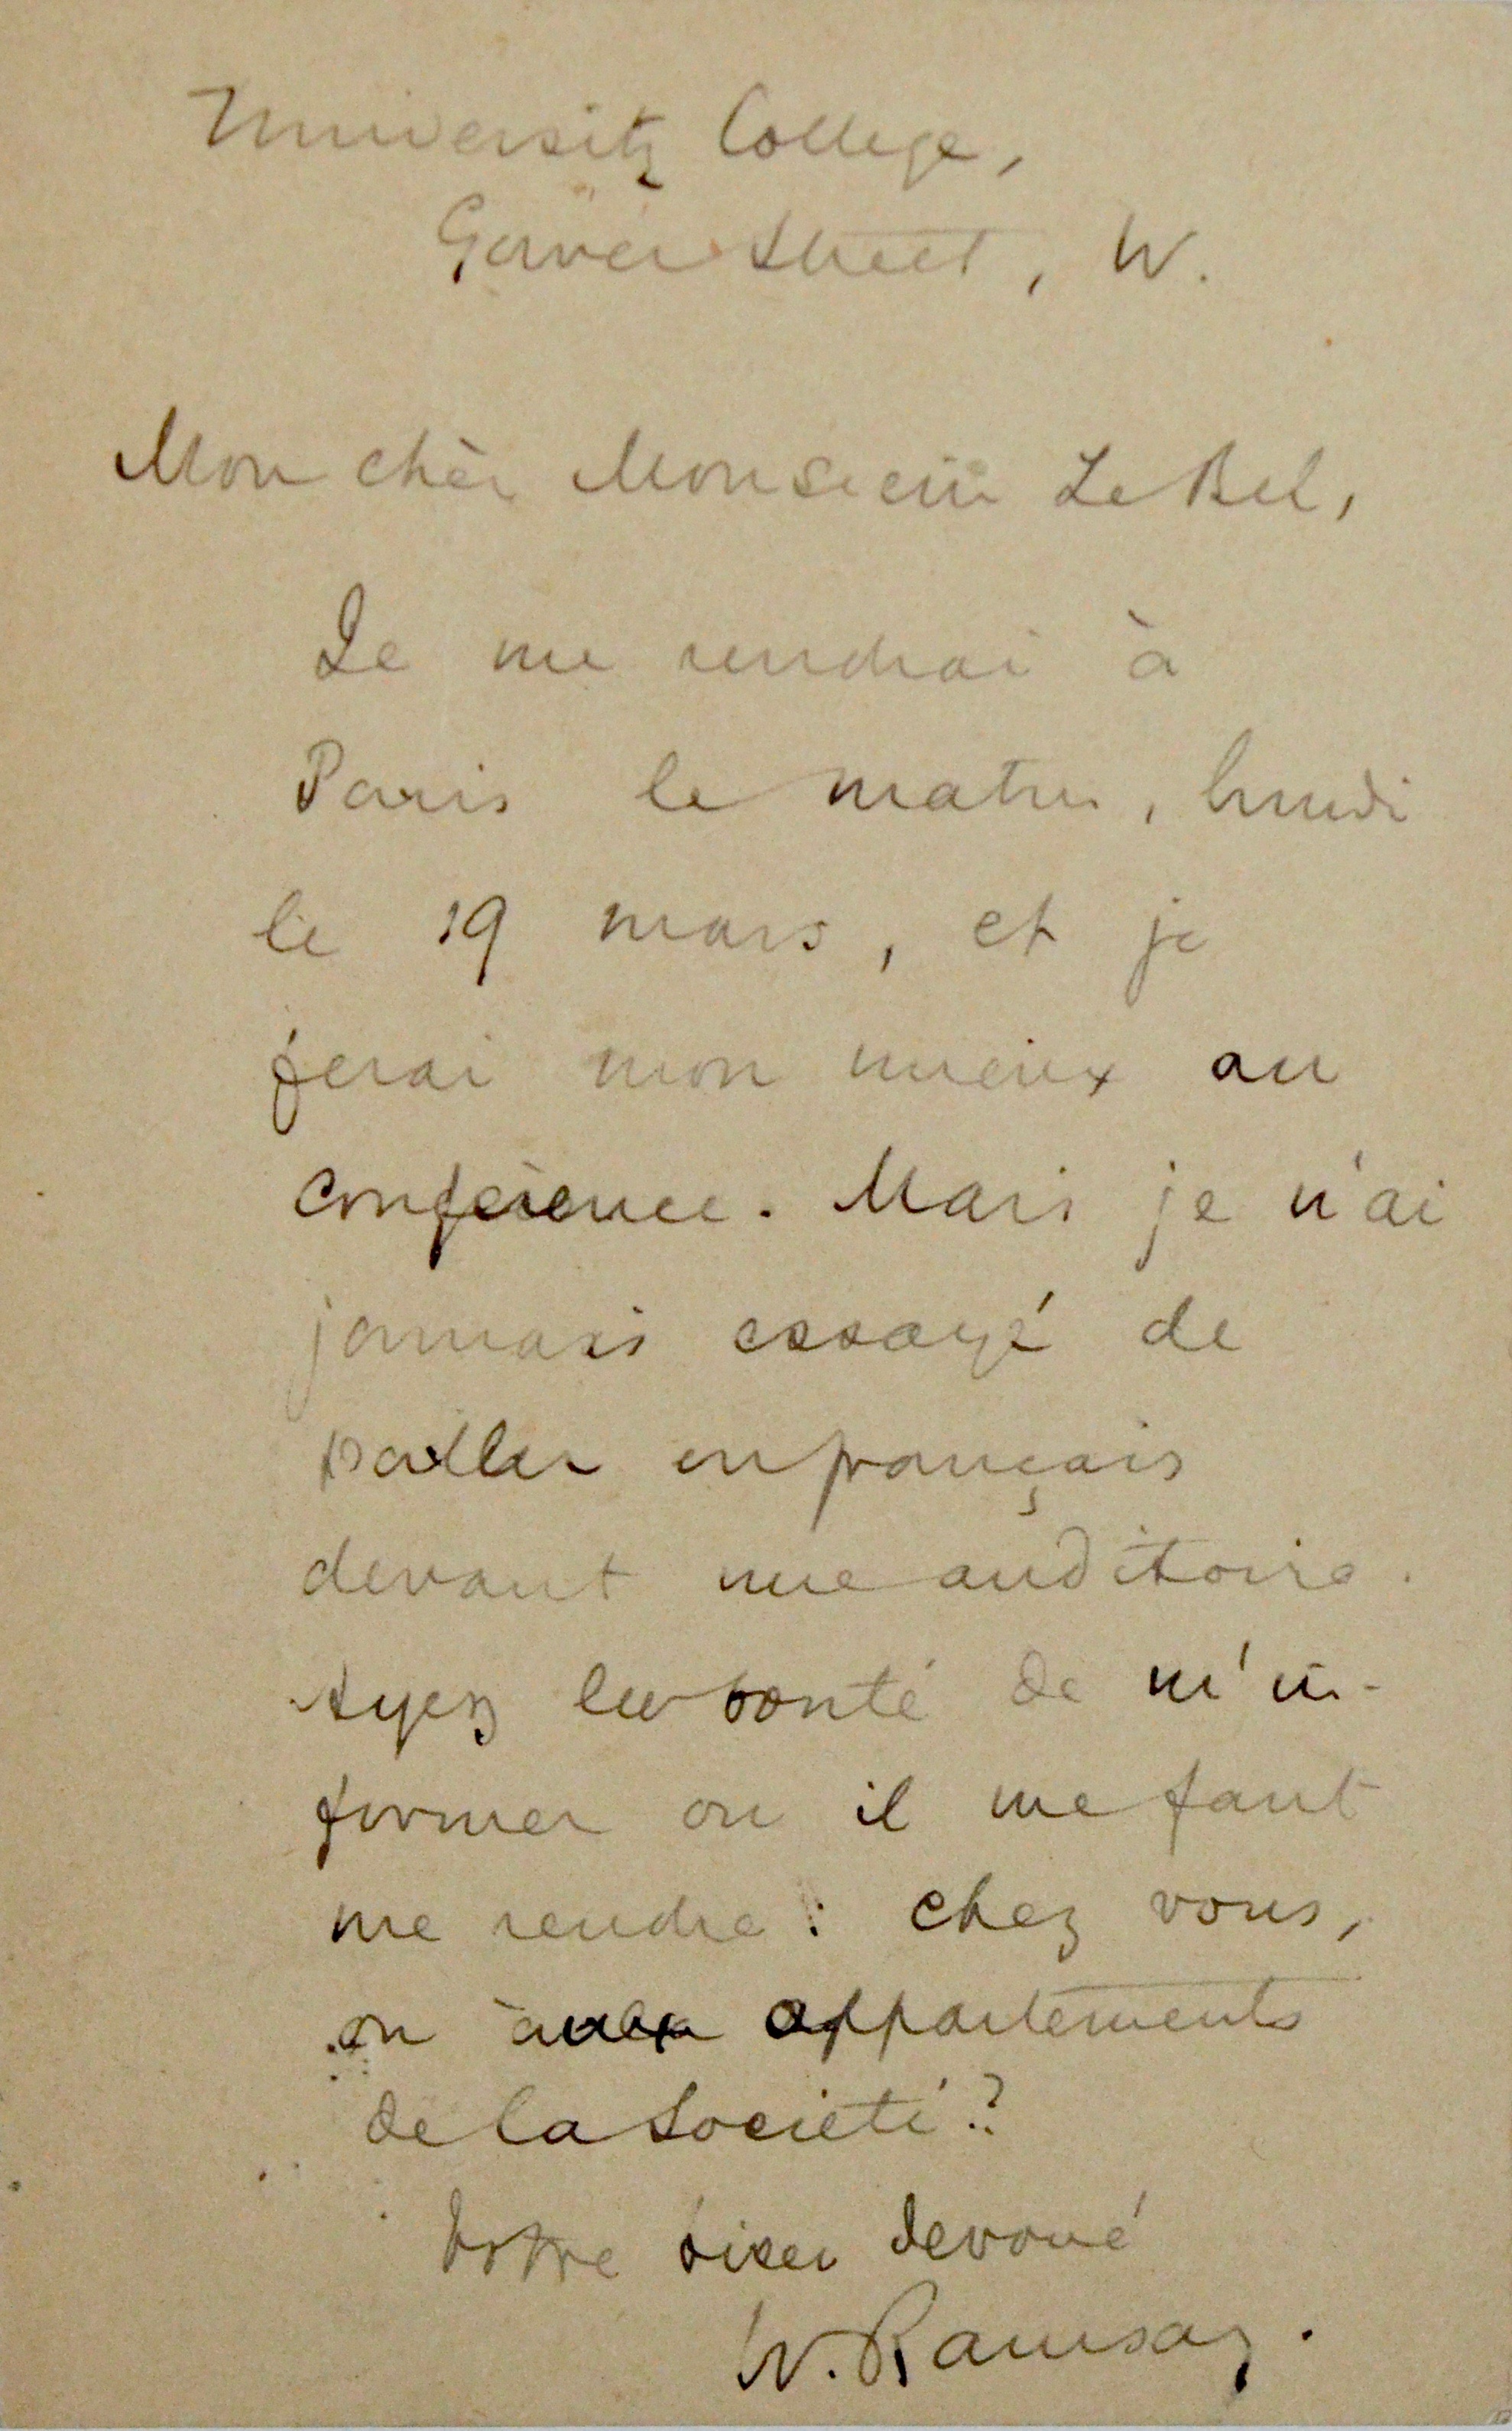 University College,
Gower Street, W.
Mon chèr Monsieur Le Bel,
Je me rendrai à
Paris le matin, lundi
le 19 mars, et je
ferai mon mieux au
conférence. Mais je n'ai
jammais essayé de
parller en français
devant une auditoire.
Ayez la bonté de m'in-
former ou il me faut
me rendre: chez vous,
ou aux appartements
de la Societé?
Votre bien devoué
W. Ramsay.